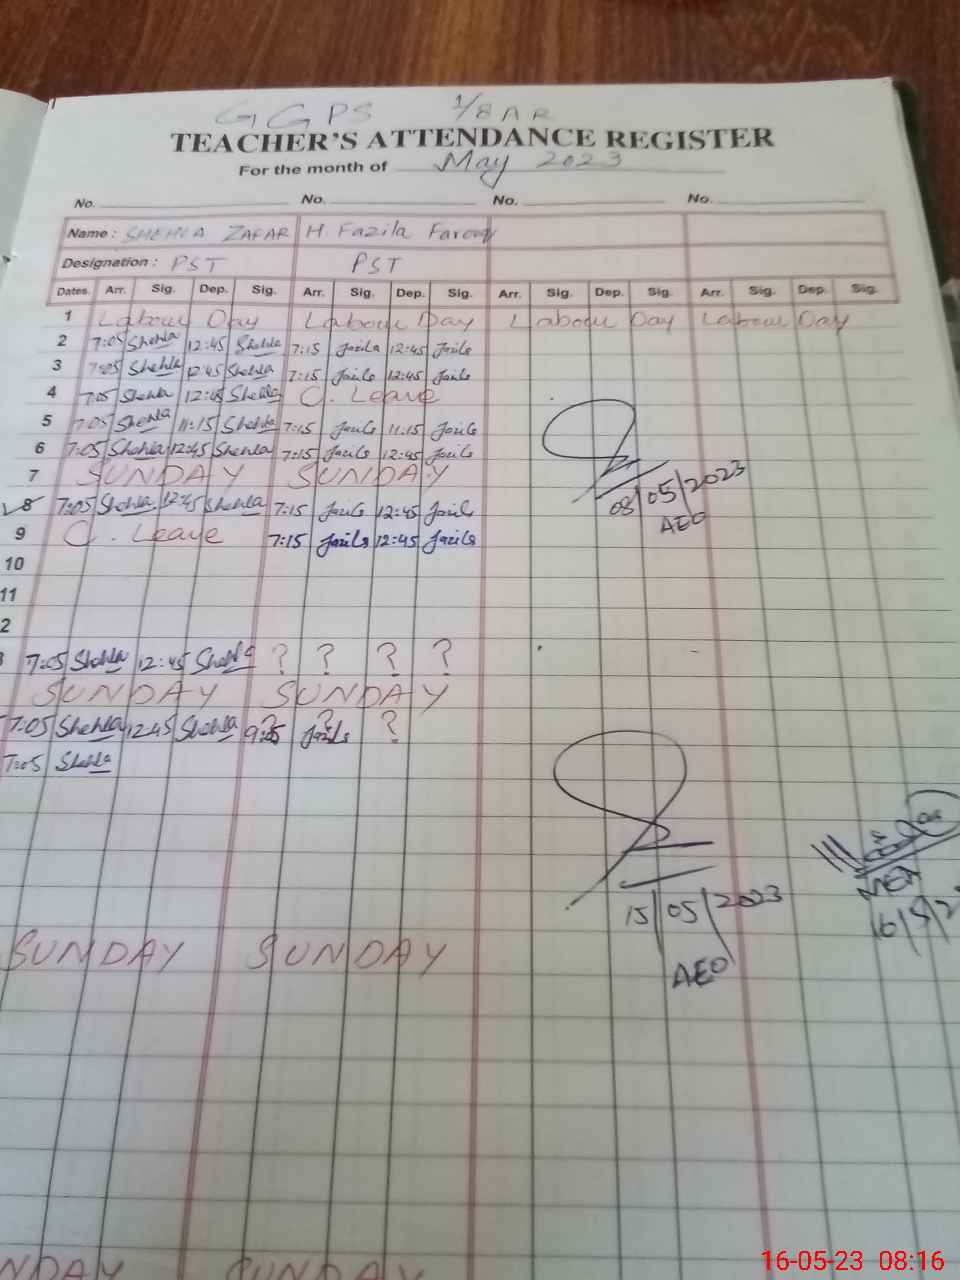 GGPS 1/8 AR
TEACHER'S ATTENDANCE REGISTER
For the month of May 2023
No. No. No. No.
Name : SHEHLA ZAFAR H Fazila Farooq
Designation : PST PST
Dates. Arr. Sig. Dep. Sig. Arr. Sig. Dep. Sig. Arr. Sig. Dep. Sig. Arr. Sig. Dep. Sig.
1 Labour Day Labour Day Labour Day Labour Day
2 7:05 Shehla 12:45 Shehla 7:15 Fazila 12:45 Fazila
3 7:05 Shehla 12:45 Shehla 7:15 Fazila 12:45 Fazila
4 7:05 Shehla 12:45 Shehla C. Leave
5 7:05 Shehla 11:15 Shehla 7:15 Fazila 11:15 Fazila
6 7:05 Shehla 12:45 Shehla 7:15 Fazila 12:45 Fazila
7 SUNDAY SUNDAY
8 7:05 Shehla 12:45 Shehla 7:15 Fazila 12:45 Fazila
08/05/2023
AEO
9 C. Leave 7:15 Fazila 12:45 Fazila
10
11
2
7:05 Shehla 12:45 Shehla ? ? ? ?
SUNDAY SUNDAY
7:05 Shehla 12:45 Shehla ? Fazila ?
7:05 Shehla
15/05/2023
AEO
SUNDAY SUNDAY
NDAY SUNDAY
16-05-23 08:16